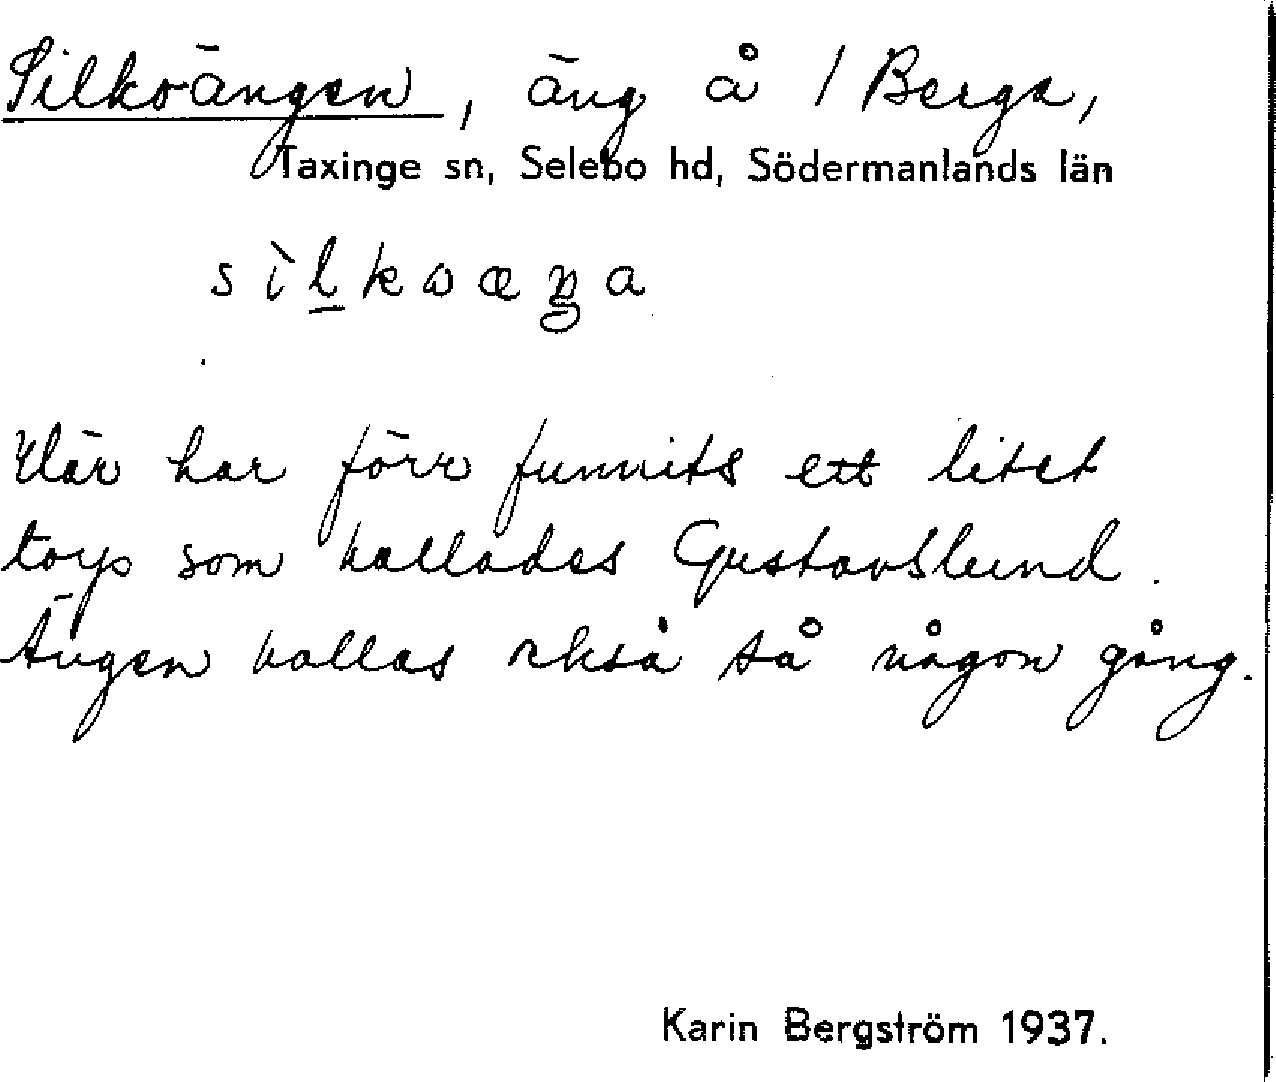 Silkoängen, äng å 1 Berga,
Taxinge sn, Selebo hd, Södermanlands län
sìlkωæŋa
Här har förr funnits ett litet
torp som kallades Gustavslund.
Ängen kallas också så någon gång.
Karin Bergström 1937.